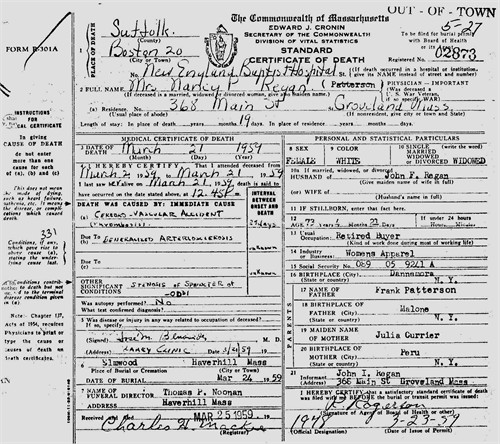 OUT - OF - TOWN
The Commonwealth of Massachusetts
EDWARD J. CRONIN
SECRETARY OF THE COMMONWEALTH
DIVISION OF VITAL STATISTICS
STANDARD
CERTIFICATE OF DEATH
5-27
To be filed for burial permit
with Board of Health
02873
FORM R-301A
PLACE OF DEATH
Suffolk
(County)
Boston 20
(City or Town)
No. New England Baptist Hospital
(If death occurred in a hospital or institution,
give its NAME instead of street and number)
2 FULL NAME Mrs. Nancy P. Regan (Patterson)
(If deceased is a married, widowed or divorced woman, give also maiden name.)
PHYSICIAN — IMPORTANT
(a) Residence. No. 368 Main St Groveland Mass.
(Usual place of abode)
(If nonresident, give city or town and State)
Length of stay: In place of death years months 19 days. In place of residence years months days.
INSTRUCTIONS
FOR
MEDICAL CERTIFICATE
In giving
CAUSE OF DEATH
do not enter
more than one
cause for each
of (a), (b) and (c)
This does not mean
the mode of dying,
such as heart failure,
asthenia, etc. It means
the disease, or
complications which caused
death.
331
Conditions, if any,
which gave rise to
above cause (a),
stating the underlying
cause last.
Conditions contributing
to death but not
related to the terminal
disease condition given
in (a).
Note: Chapter 137,
Acts of 1954, requires
Physicians to print or
type the cause or
causes of death on
death certificates.
MEDICAL CERTIFICATE OF DEATH
3 DATE OF DEATH March 21 1959
(Month) (Day) (Year)
4 I HEREBY CERTIFY That I attended deceased from
March 2, 1959, to March 21, 1959
I last saw h er alive on March 21, 1959, death is said to
have occurred on the date stated above, at 12:45 P m.
INTERVAL BETWEEN ONSET AND DEATH
DEATH WAS CAUSED BY: IMMEDIATE CAUSE
(a) Cerebro-Vascular Accident
(Thrombosis)
Due to
(b) Generalized Arteriosclerosis
unknown
Due to
(c)
unknown
OTHER SIGNIFICANT CONDITIONS Stenosis of Sphincter of Oddi
Was autopsy performed? No
What test confirmed diagnosis?
5 Was disease or injury in any way related to occupation of deceased?
If so, specify
(Signed) M. D.
(Address) Lahey Clinic Date 3/21 1959
6 Elmwood Haverhill Mass
Place of Burial or Cremation (City or Town)
DATE OF BURIAL Mar 24 1959
7 NAME OF
FUNERAL DIRECTOR Thomas P. Noonan
ADDRESS Haverhill Mass
Received and filed MAR 25 1959 19
Charles H. Mackie
PERSONAL AND STATISTICAL PARTICULARS
8 SEX FEMALE
9 COLOR WHITE
10 SINGLE MARRIED WIDOWED or DIVORCED WIDOWED
10a If married, widowed, or divorced
HUSBAND of John F. Regan
(Give maiden name of wife in full)
(or) WIFE of
(Husband's name in full)
11 IF STILLBORN, enter that fact here.
12 AGE 73 Years Months 22 Days
If under 24 hours
Hours Minutes
13 Usual Occupation: Retired Buyer
(Kind of work done during most of working life)
14 Industry or Business: Womens Apparel
15 Social Security No. 089 05 9241 A
16 BIRTHPLACE (City) Dannamora
(State or country) N. Y.
PARENTS
17 NAME OF FATHER Frank Patterson
18 BIRTHPLACE OF FATHER (City) Malone
(State or country) N. Y.
19 MAIDEN NAME OF MOTHER Julia Currier
20 BIRTHPLACE OF MOTHER (City) Peru
(State or country) N. Y.
21 Informant John I. Regan
(Address) 368 Main St Groveland Mass
I HEREBY CERTIFY that a satisfactory standard certificate of death was filed with me BEFORE the burial or transit permit was issued:
(Signature of Agent of Board of Health or other)
1948 3-23-59
(Official Designation) (Date of Issue of Permit)